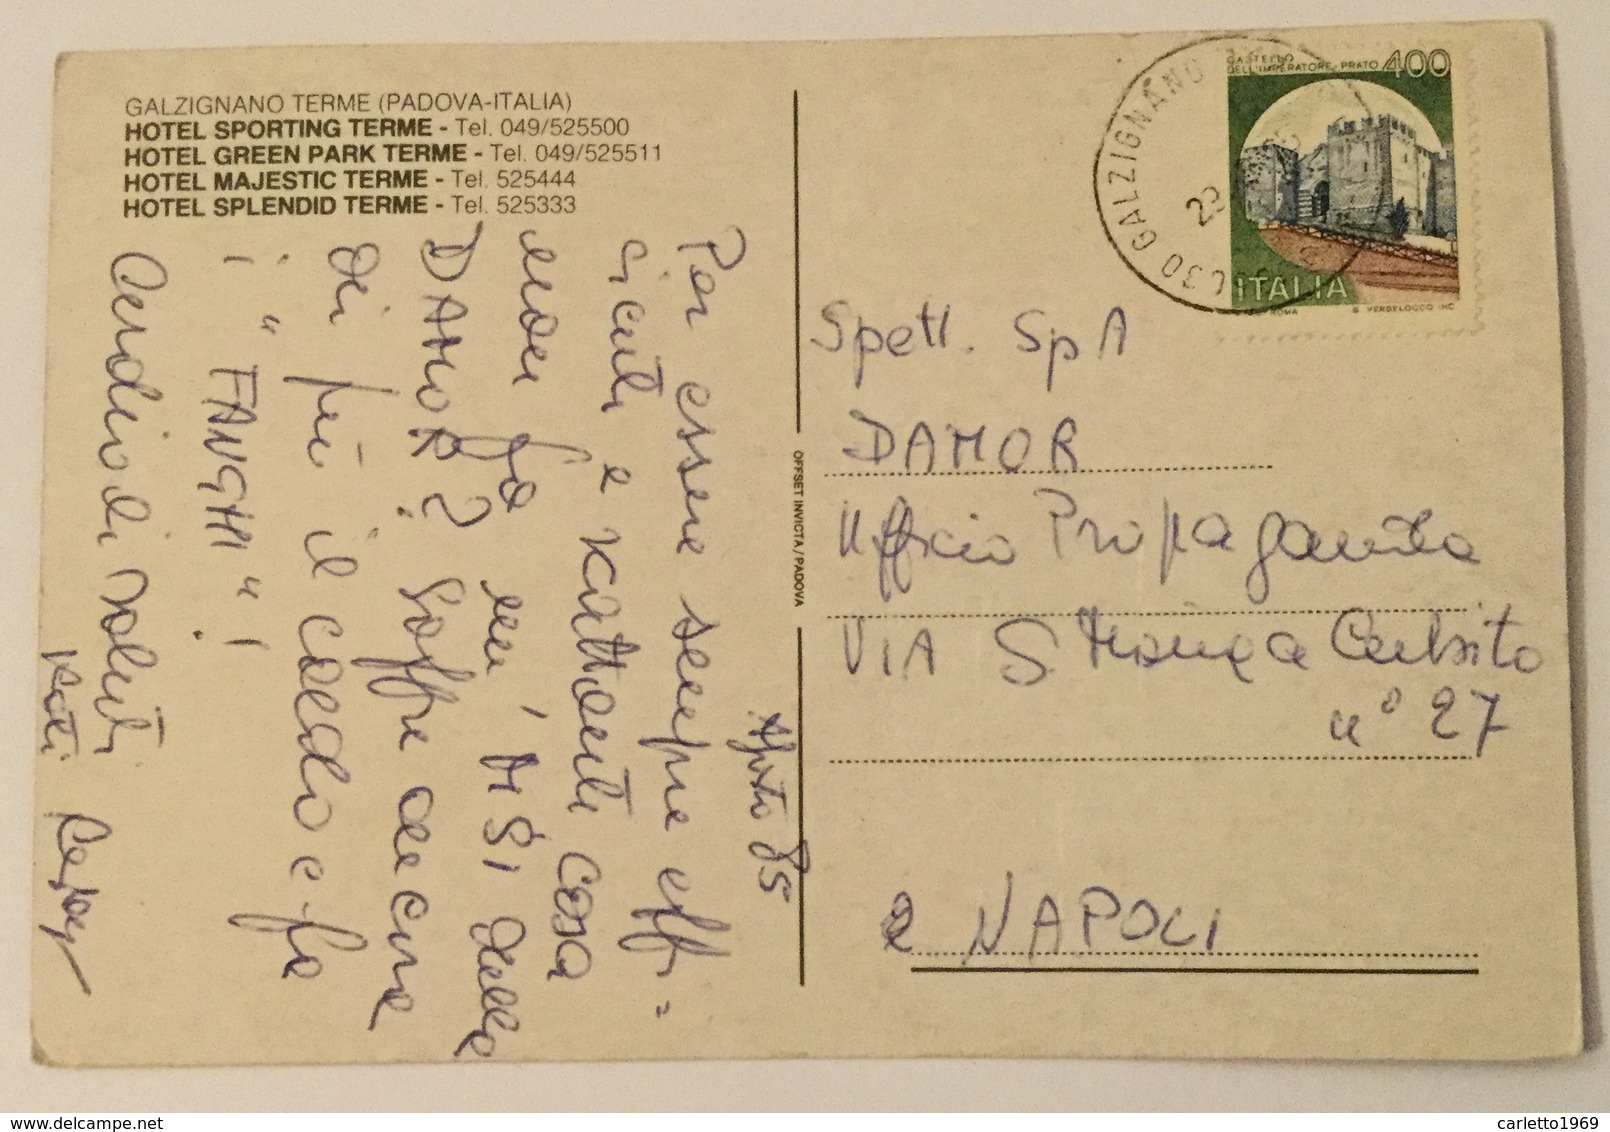 GALZIGNANO TERME (PADOVA-ITALIA)
HOTEL SPORTING TERME - Tel. 049/525500
HOTEL GREEN PARK TERME - Tel. 049/525511
HOTEL MAJESTIC TERME - Tel. 525444
HOTEL SPLENDID TERME - Tel. 525333
Agosto 85
Per essere sempre effi=
cienti e scattanti cosa
non fa un' MSI della
DAMOR? Soffre le cure
di più il caldo e fa
i "FANGHI"!
Cordiali saluti
OFFSET INVICTA / PADOVA
CASTELLO
DELL'IMPERATORE - PRATO 400
ITALIA
ROMA
G. VERDELOCCO INC.
GALZIGNANO
29
Spett. SpA
DAMOR
Ufficio Propaganda
VIA S Monica Cubito
n° 27
a NAPOLI
carletto1969